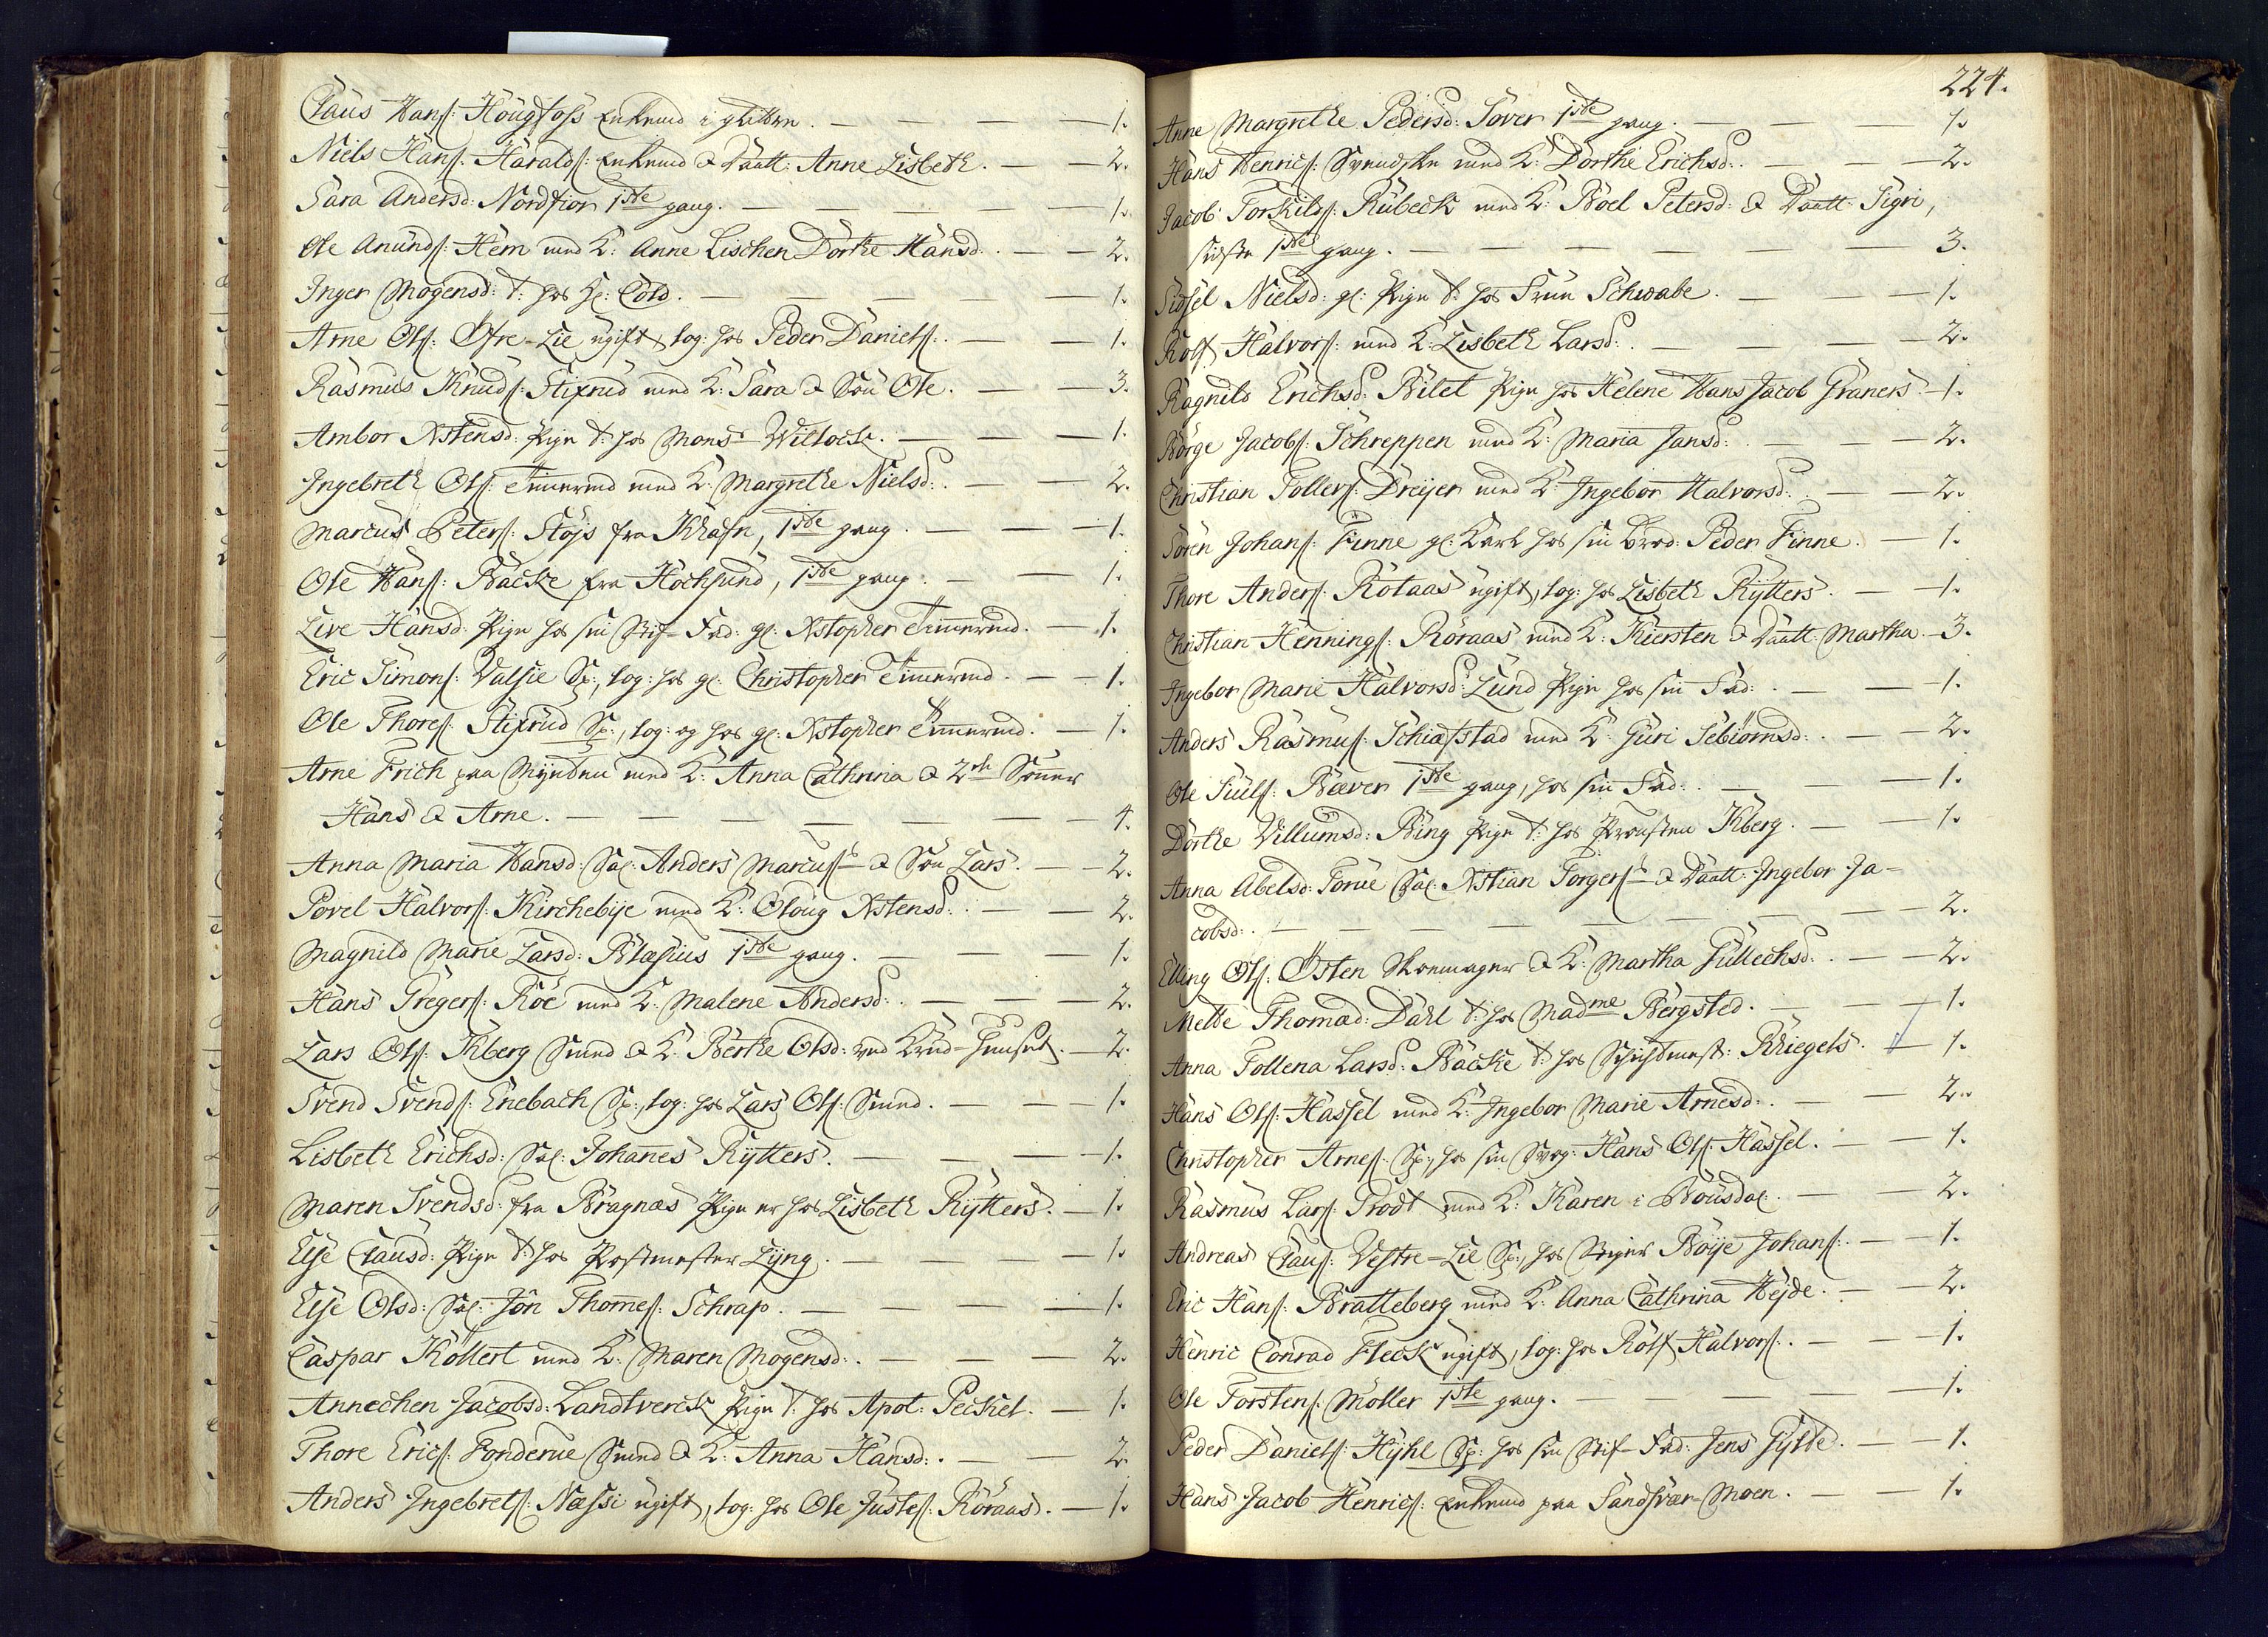 Claus Hanß: Hougfoss Enkemd i glitren. — 1.
Niels Hanß: Haralds: Enkemd & Daatt: Anne Lisbeth. — 2.
Sara Andersd: Nordfior 1ste gang. — 1.
Ole Anunds: Hem med K: Anne Lischen Dorthe Hansd. — 2.
Inger Mogensd: t: hos Hr: Cold. — 1.
Arne Ols: Øfre-Lie ugift, log: hos Peder Daniels: — 1.
Rasmus Knuds: Stixrud med K: Sara & Søn Ole. — 3.
Ambor Xstensd: Pige t: hos Monsr Willock. — 1.
Ingebreth Ols: Timermd med K: Margrethe Nielsd: — 2.
Marcus Peters: Støys fra, 1ste gang. — 1.
Ole Hanß: Backe fra Hochsund, 1ste gang. — 1.
Live Hansd: Pige hos sin Stif-Fad: gl: Xstopher Timermd. — 1.
Eric Simons: Valsie Sp:, log: hos gl: Christopher Timermd. — 1.
Ole Thores: Stixrud Sp:, log: og hos gl: Xstopher Timermd. — 1.
Arne Frich paa Mynten med K: Anna Cathrina & 2de Sønner
Hans & Arne. — 4.
Anna Maria Hansd: Sal: Anders Marcus: & Søn Lars. — 2.
Povel Halvors: Kirchebye med K: Oloug Xstensd: — 2.
Magnild Marie Larsd: Blæsius 1ste gang. — 1.
Hans Gregers: Röe med K: Malene Andersd: — 2.
Lars Ols: Kberg Smed & K: Berthe Olsd: ved Krud-Huuset. — 2.
Svend Svends: Enebach Sp:, log: hos Lars Ols: Smed. — 1.
Lisbeth Erichsd: Sal: Johanes Rytters. — 1.
Maren Svendsd: fra Bragnæs Pige er hos Lisbeth Rytters. — 1.
Else Clausd: Pige t: hos Postmester Lyng. — 1.
Else Olsd: Sal: Jon Thomes: Schrap. — 1.
Caspar Köllert med K: Maren Mogensd: — 2.
Annechen Jacobsd: Landtverck Pige t: hos Apot: Peckel. — 1.
Thore Erics: Fonderue Smed & K: Anna Hansd: — 2.
Anders Ingebrets: Næssi ugift, log: hos Ole Justes: Röraas. — 1.
224.
Anne Margrethe Pedersd: Sover 1ste gang. — 1.
Hans Henrics: Svendske med K: Dorthe Erichsd: — 2.
Jacob Torkilds: Rübeck med K: Boel Petersd: & Daatt: Sigri,
sidste 1ste gang. — 3.
Sidsel Nielsd: gl: Pige t: hos Frue Schwabe. — 1.
Rolf Halvors: med K: Lisbeth Larsd: — 2.
Ragnild Erichsd: Bilet Pige hos Helene Hans Jacob Graners. — 1.
Börge Jacobs: Schreppen med K: Maria Jansd: — 2.
Christian Tollers: Dreyer med K: Ingebor Halvorsd: — 2.
Sören Johans: Finne gl: Karl hos sin Brod: Peder Finne. — 1.
Thore Anders: Rotaas ugift, log: hos Lisbeth Rytters. — 1.
Christian Hennings: Röraas med K: Kiersten & Daatt: Martha. — 3.
Ingebor Marie Halvorsd: Lund Pige hos sin Fad: — 1.
Anders Rasmus: Schiæfstad med K: Guri Sebiörnsd: — 2.
Ole Juuls: Bæver 1ste gang, hos sin Fad: — 1.
Dorthe Villumsd: Bing Pige t: hos Provsten Kberg. — 1.
Anna Abelsd: Torüe Sal: Xstian Torgers: & Daatt: Ingebor Ja-
cobsd: — 2.
Elling Ols: Østen Skoemager & K: Martha Gullechsd: — 2.
Mette Thomæd: Dahl t: hos Madme Bergsted. — 1.
Anna Tollena Larsd: Backe t: hos Schichtmest: Kriegels. — 1.
Hans Ols: Hassel med K: Ingebor Marie Arnesd: — 2.
Christopher Arnes: Sp:, hos sin Svog: Hans Ols: Hassel. — 1.
Rasmus Lars: Trodt med K: Karen i Bousdal. — 2.
Andreas Claus: Vestre-Lie Sp:, hos Steyer Böije Johans: — 1.
Eric Hans: Bratteberg med K: Anna Cathrina Heyde. — 2.
Henric Conrad Fleck ugift, log: hos Rolf Halvors: — 1.
Ole Torstens: Møller 1ste gang. — 1.
Peder Daniels: Hyhl Sp: hos sin Stif-Fad: Jens Gylte. — 1.
Hans Jacob Henrics: Enkemd paa Sandsvær-Moen. — 1.